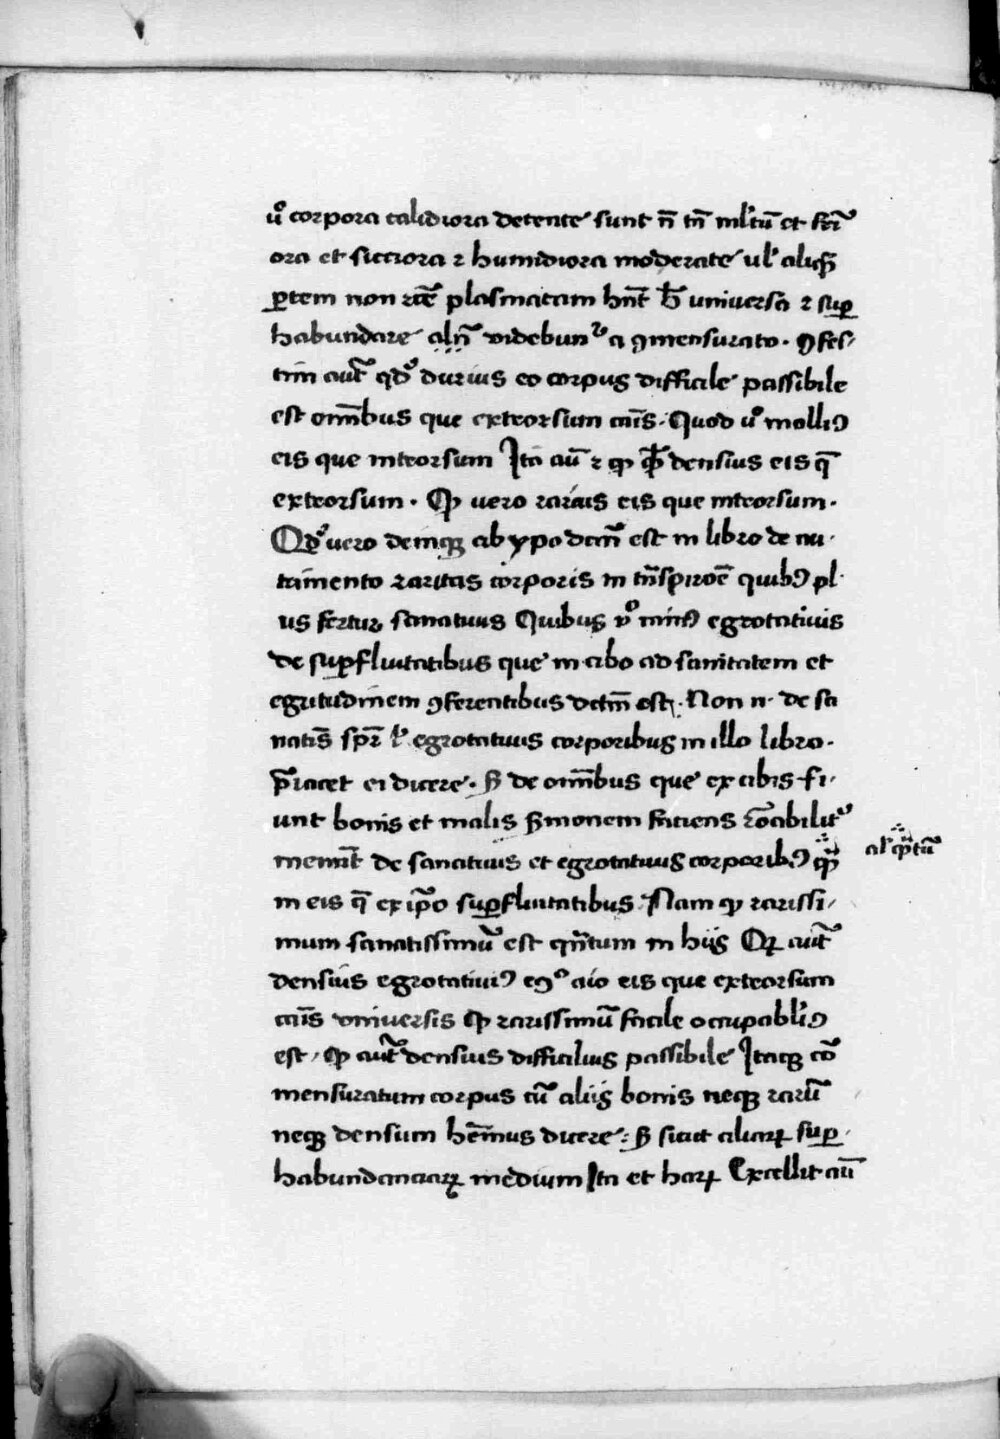 u͛o corpora calidiora detente sunt n̄ tn̄ ml'tū et fri
ora et sicciora ⁊ humidiora moderate ul' aliqḥ
ꝑtem non rc̄e plasmatam hn̄t h̄ universa ⁊ suꝑ
habundare aln̄ videbunr a ꝯmensurato. ꝯfes/
tim aut̄ qd̓ durius eo corpus difficile passibile
est om̄ibus que exteorsum cāis. Quod uº molliꝰ
eis que inteorsum Ita aū ⁊ qͥ densius eis q̄
exteorsum. Qͥ vero rarius eis que inteorsum.
Qd̓ vero deinqꝫ ab ypo dcm̄ est in libro de nu.
tamento raritas corporis in tn̄spiroē quibꝰ pl.
us fertur sanativis Quibus vº minꝰ egrotativis
de suꝑfluitatibus que in cibo ad sanitatem et
egritudinem ꝯferentibus dctm̄ est. Non n. de sa
natis̄ spr̄ l' egrotativis corporibus in illo libro.
p̄iacet ei dicere. ẞ de om̄ibus que ex cibis fi/
unt bonis et malis ẞmonem faciens rōabilit᷑
memīt de sanativis et egrotativus corporibꝰ qͣꝫ
al' qͣꝫtū
in eis q̄ ex ip̄o suꝑfluitatibus Nam qͥ rarissi/
mum sanatissimū est qn̄tum in hijs Qꝫ aut̄
densius egrotativiꝰ eꝯº aio eis que exteorsum
cāis universis qͥ rarissimū facile occupabl'iꝰ
est / qͥ aut̄ densius difficilius passibile Itaqꝫ cō
mensuratum corpus cū aliis bonis neqꝫ rarū
neqꝫ densum hēmus dicere: ẞ sicut aliaꝝ suꝑ.
habundanciaꝝ medium Ita et haꝝ Excellit aū